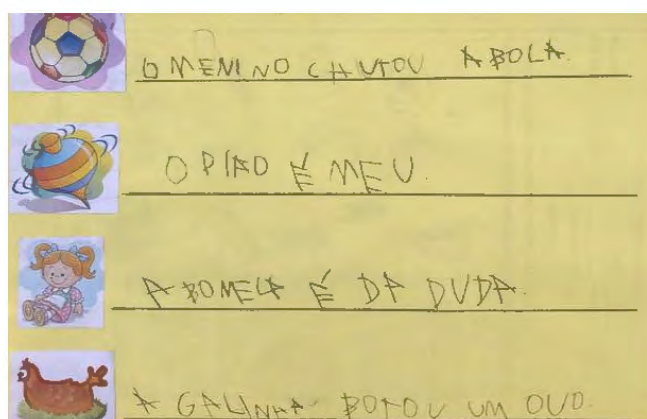 O MENINO CHUTOU ABOLA.
O PIAO É MEU.
A BOMECA É DA DUDA.
A GALINHA BOTOU UM OUO.